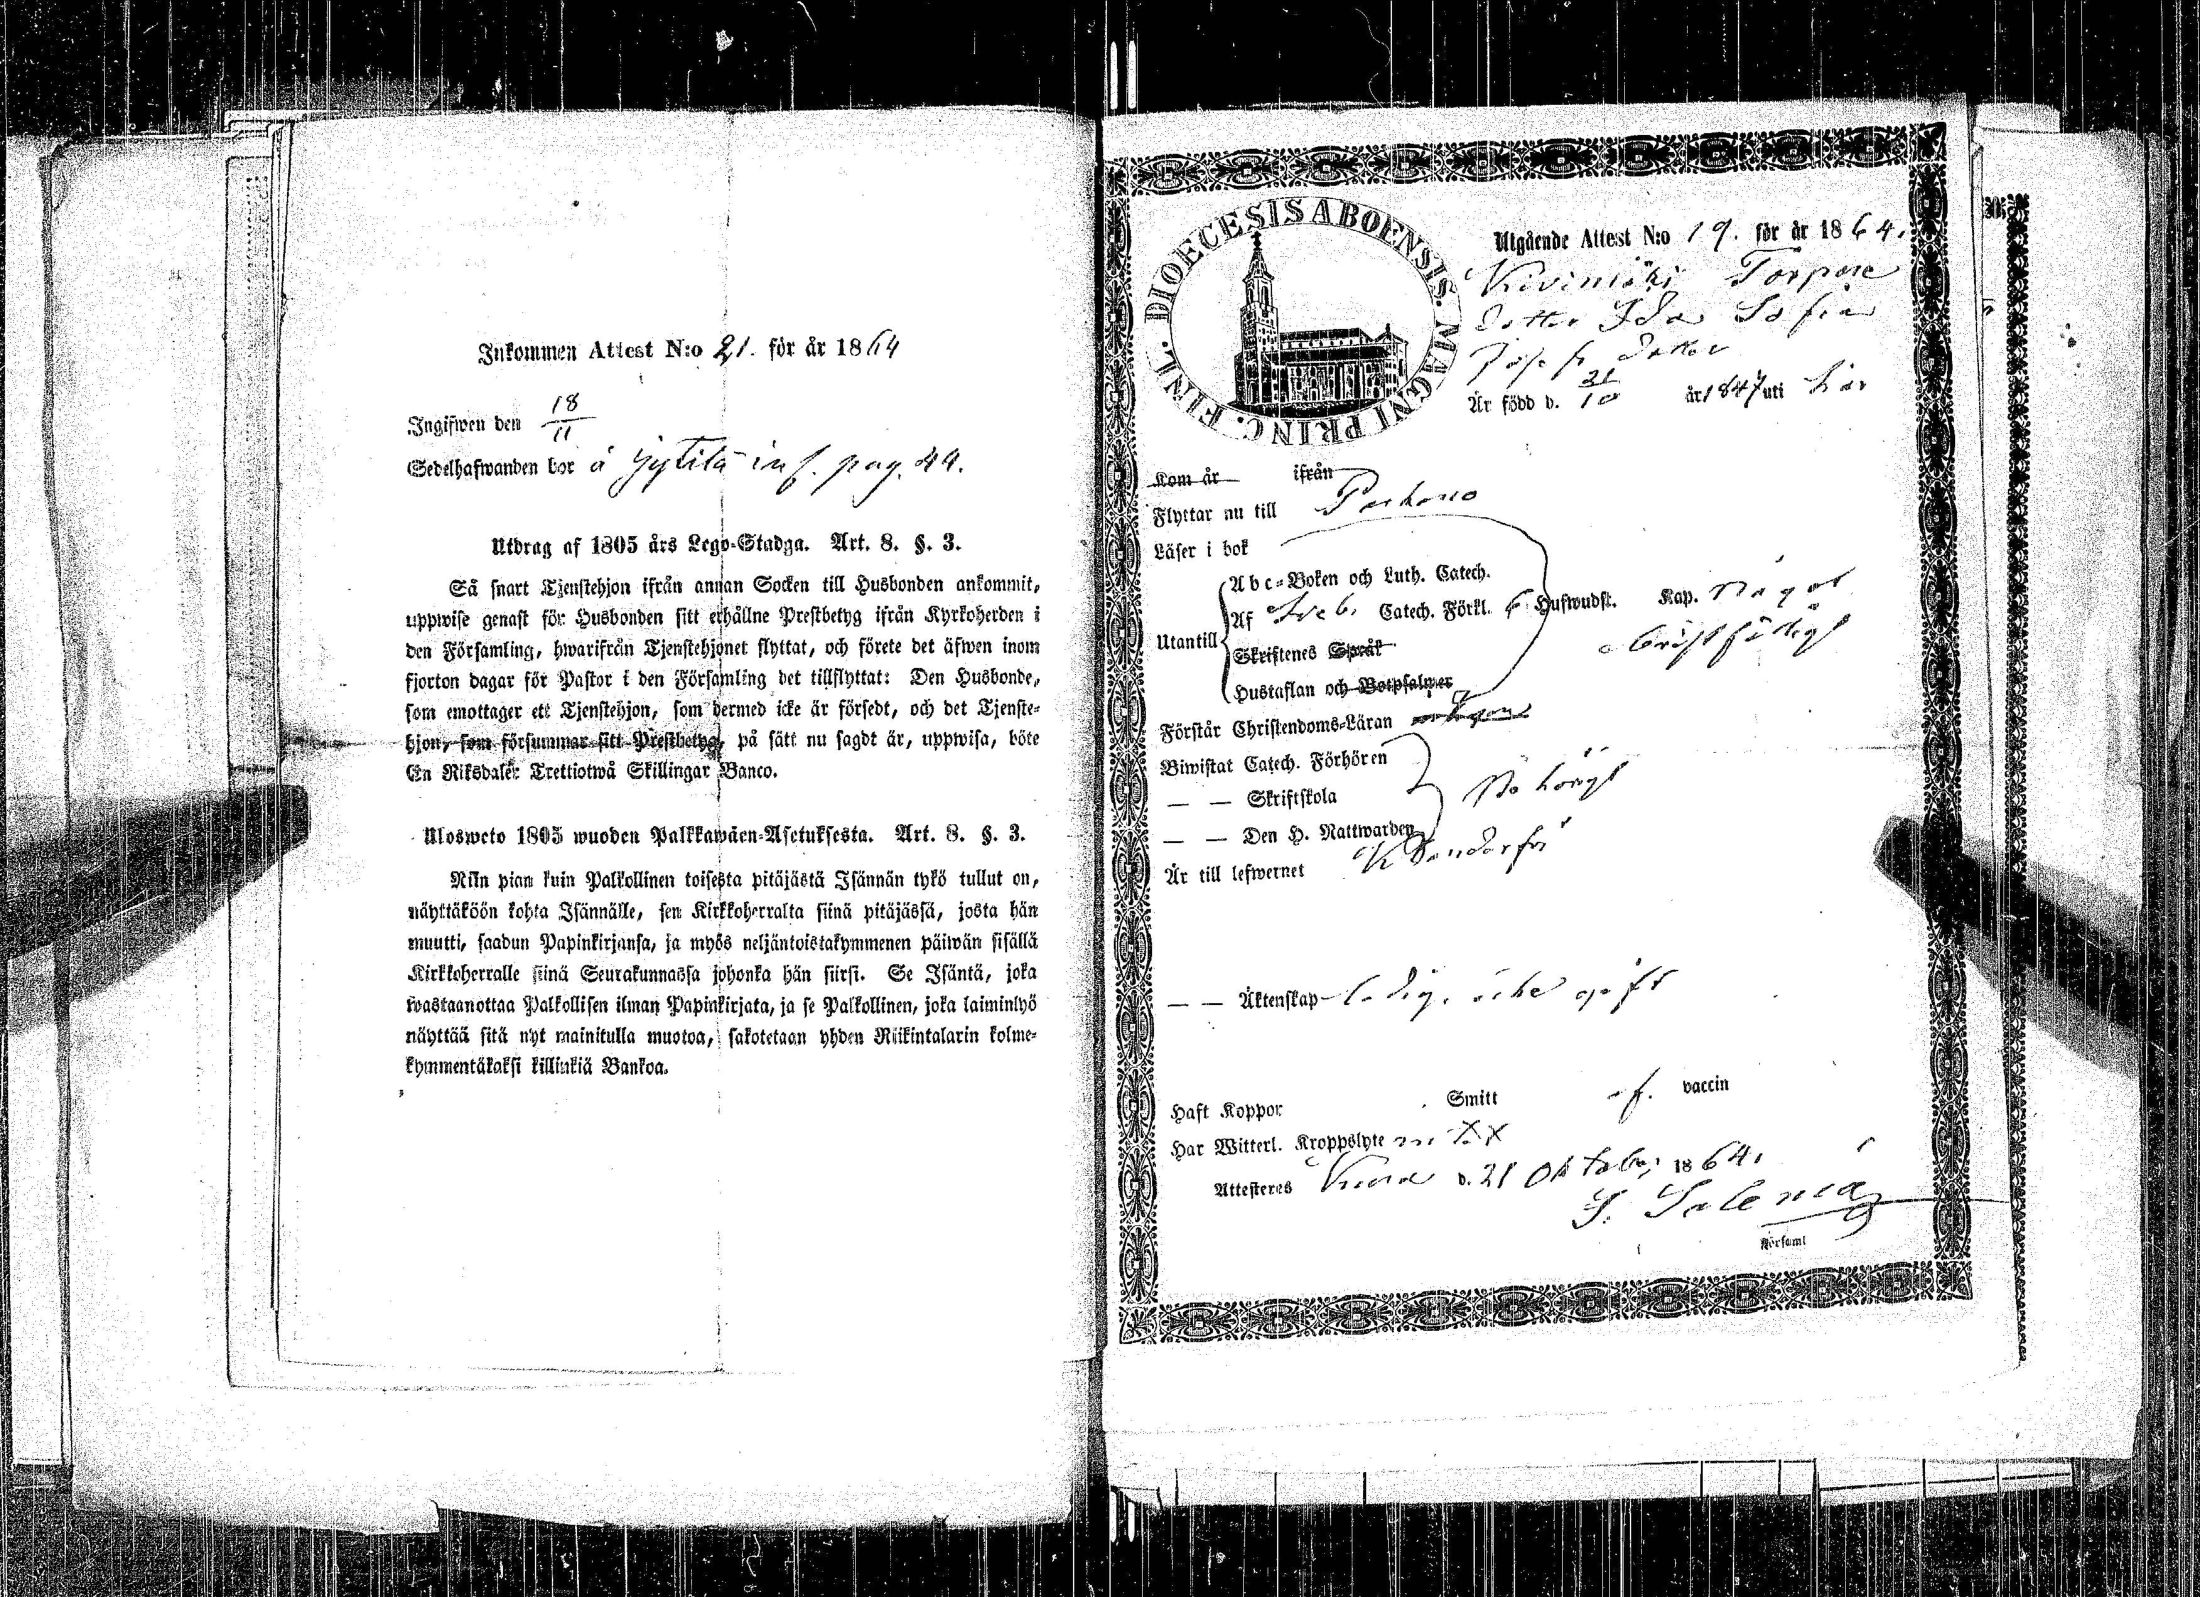 Inkommen Attest N:o 21. för år 1864
Ingifwen den 18/11
Sedelhafwanden bor å Jytilä inf. pag. 44.
Utdrag af 1805 års Lego-Stadga. Art. 8. §. 3.
Så snart Tjenstehjon ifrån annan Socken till Husbonden ankommit,
uppwise genast för Husbonden sitt erhållne Prestbetyg ifrån Kyrkoherden i
den Församling, hwarifrån Tjenstehjonet flyttat, och förete det äfwen inom
fjorton dagar för Pastor i den Församling det tillflyttat: Den Husbonde,
som emottager ett Tjenstehjon, som dermed icke är försedt, och det Tjenste-
hjon, som försummar sitt Prestbetyg, på sätt nu sagdt är, uppwisa, böte
En Riksdaler Trettiotwå Skillingar Banco.
Ulosweto 1805 wuoden Palkkawäen-Asetuksesta. Art. 8. §. 3.
Niin pian kuin Palkollinen toisesta pitäjästä Isännän tykö tullut on,
näyttäköön kohta Isännälle, sen Kirkkoherralta siinä pitäjässä, josta hän
muutti, saadun Papinkirjansa, ja myös neljäntoistakymmenen päiwän sisällä
Kirkkoherralle siinä Seurakunnassa johonka hän siirsi. Se Isäntä, joka
wastaanottaa Palkollisen ilman Papinkirjata, ja se Palkollinen, joka laiminlyö
näyttää sitä nyt mainitulla muotoa, sakotetaan yhden Riikintalarin kolme-
kymmentäkaksi killinkiä Bankoa.
DIOECESIS ABOENSIS. MAGNI PRINC. FINL.
Utgående Attest N:o 19. för år 1864.
Kivimäki Torpare
dotter Ida Sofia
Josefs dotter
Är född d. 21/10 år 1847 uti här
Kom år ifrån
Flyttar nu till Parkano
Läser i bok
Abc-Boken och Luth. Catech.
Utantill Af Sveb. Catech. Förkl. 6 Hufwudst. Kap. något
Skriftenes Språk bristfäligt
Hustaflan och Botpsalmer
Förstår Christendoms-Läran
Biwistat Catech. Förhören
— — Skriftskola behörigt
— — Den H. Nattwarden
Är till lefwernet klanderfri
— — Äktenskap ledig, icke gift
Haft Koppor Smitt af. vaccin
Har Witterl. Kroppslyte
Attesteras d. 21 Oktober 1864.
Församl